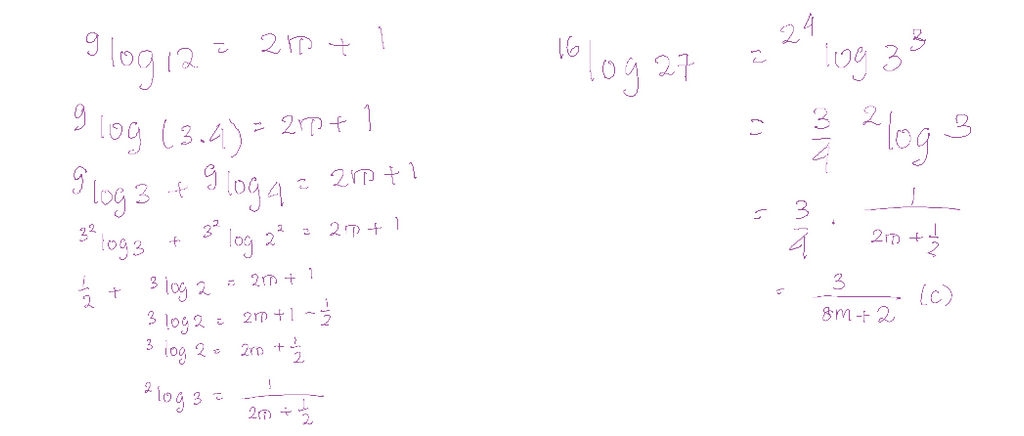 ⁹log 12 = 2m + 1
⁹log (3.4) = 2m + 1
⁹log 3 + ⁹log 4 = 2m + 1
3²log 3 + 3²log 2² = 2m + 1
1/2 + ³log 2 = 2m + 1
³log 2 = 2m + 1 - 1/2
³log 2 = 2m + 1/2
²log 3 = 1/(2m + 1/2)
¹⁶log 27 = 2⁴log 3³
= 3/4 ²log 3
= 3/4 . 1/(2m + 1/2)
= 3/(8m + 2) (C)